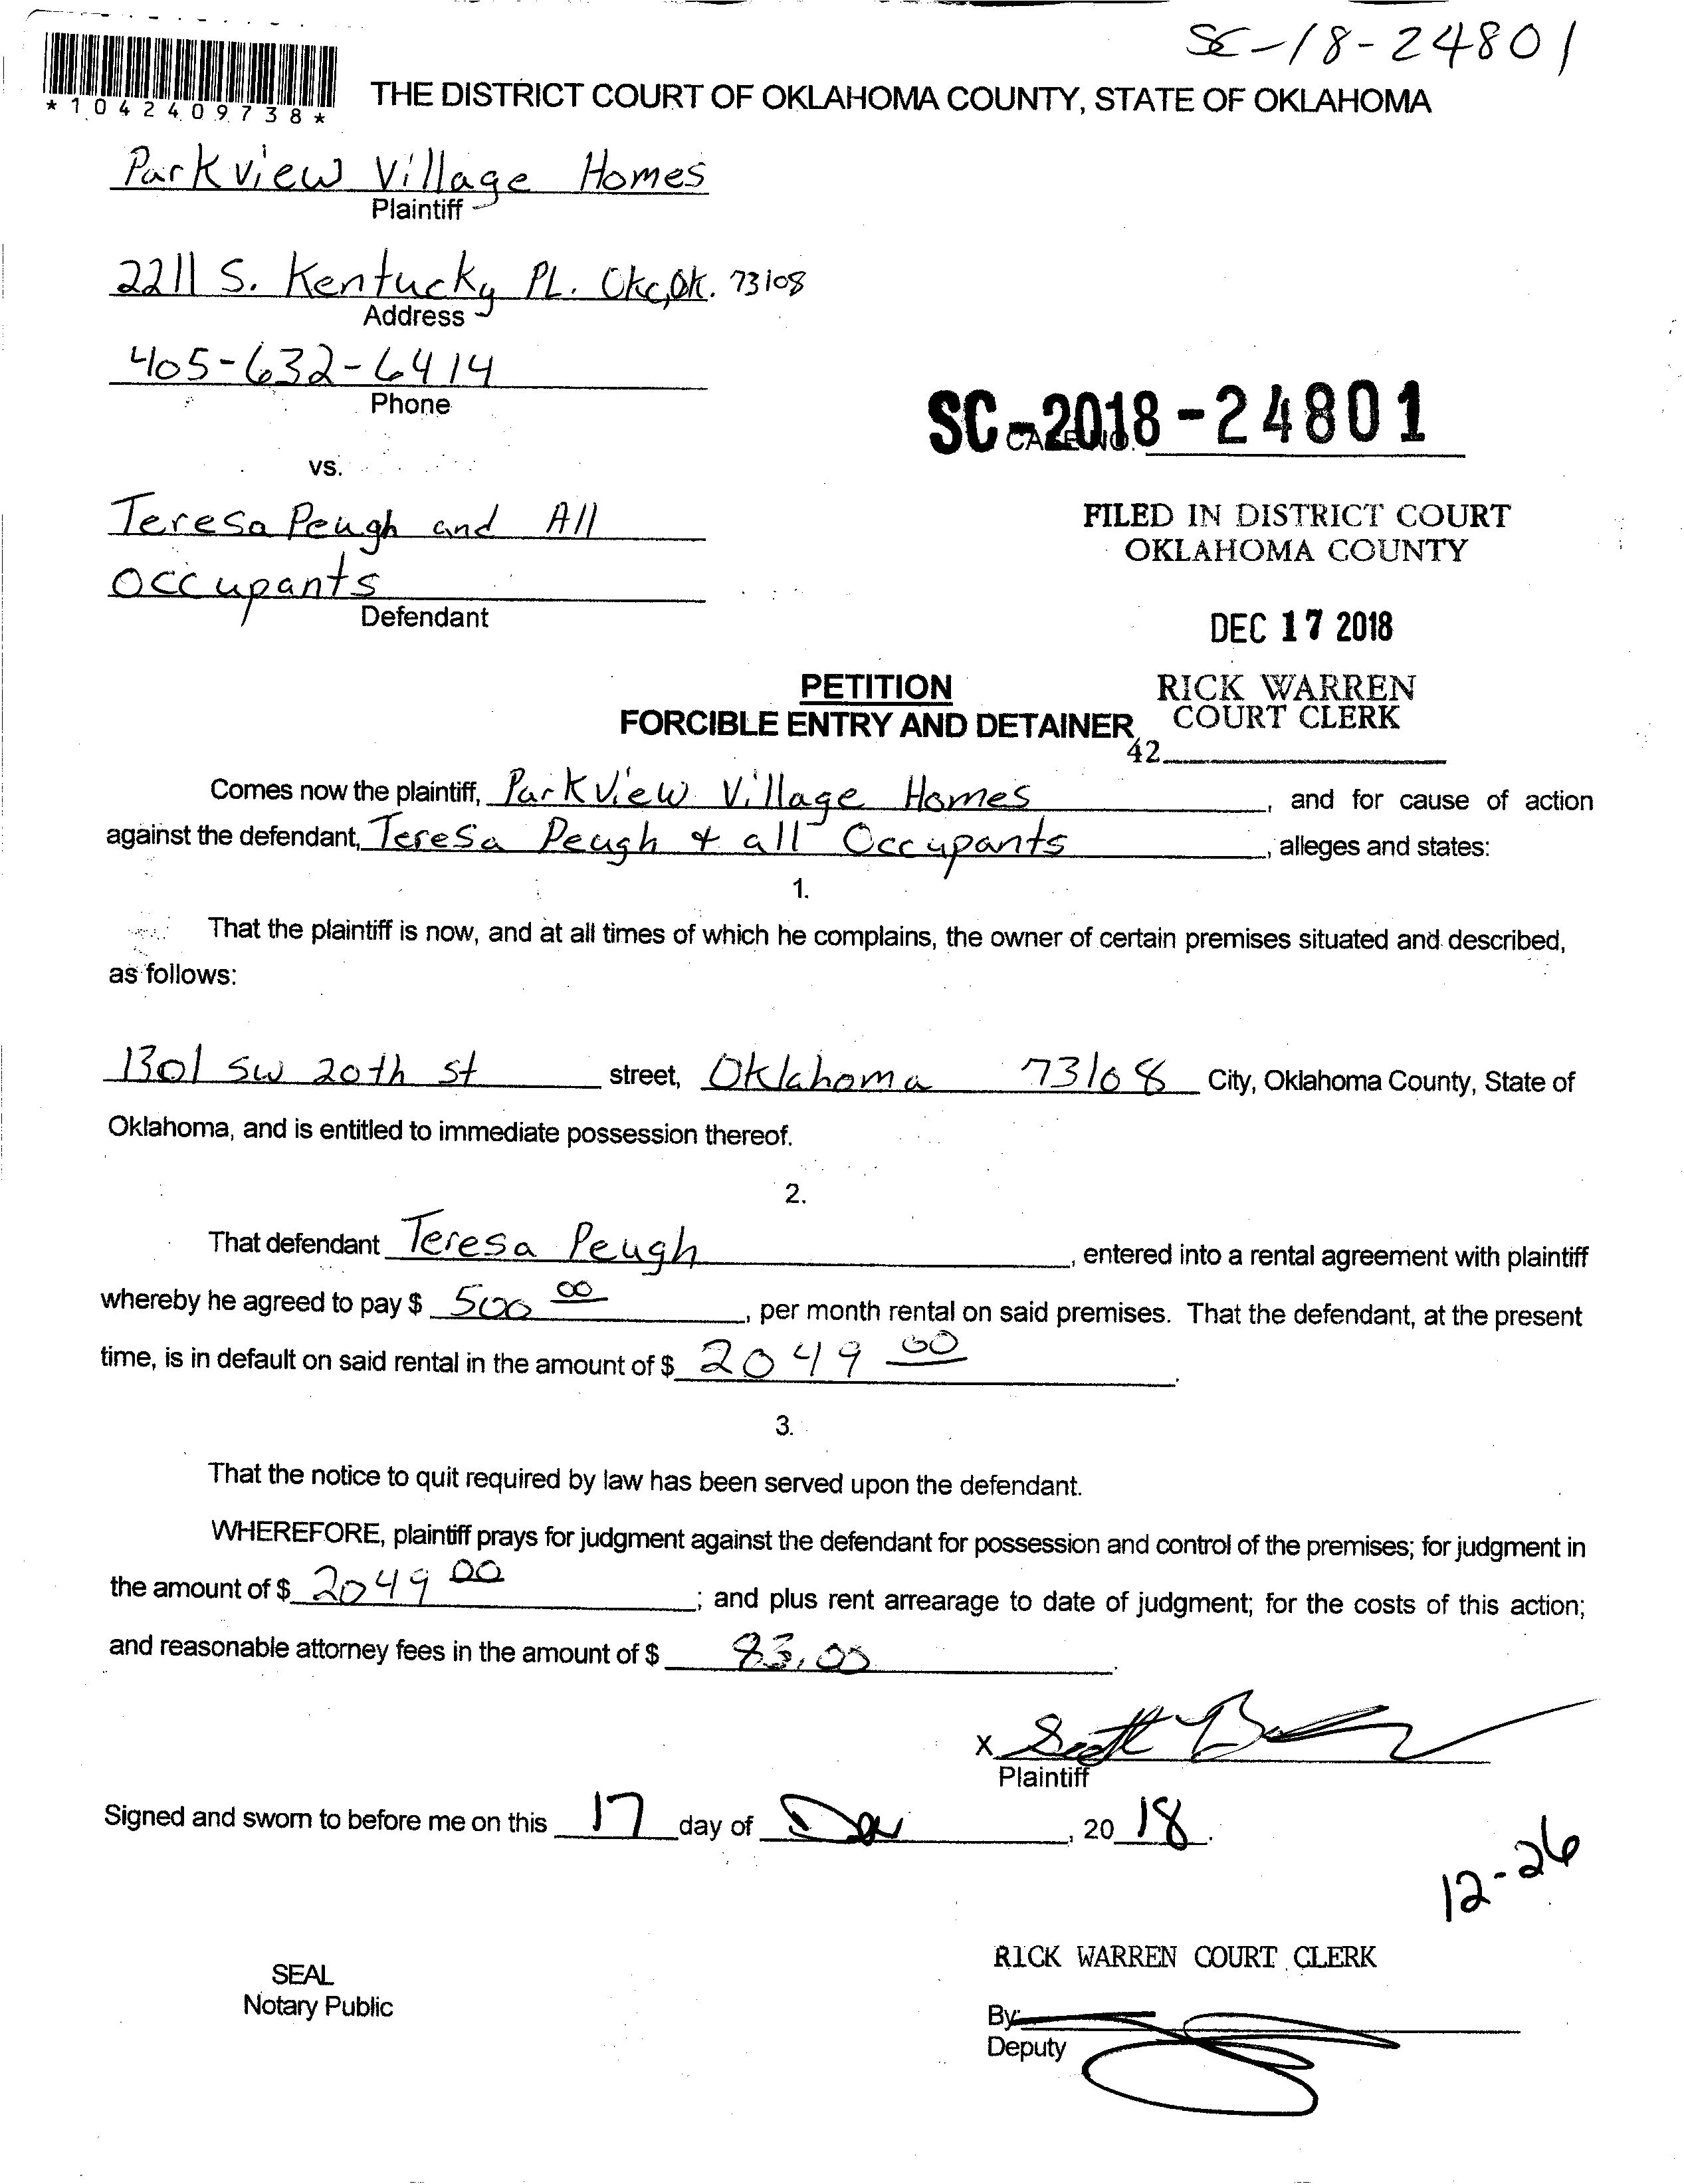 SC-18-24801
*1042409738*
THE DISTRICT COURT OF OKLAHOMA COUNTY, STATE OF OKLAHOMA
Parkview Village Homes
Plaintiff
2211 S. Kentucky PL. Okc, Ok. 73108
Address
405-632-6414
Phone
SC-2018-24801
CASE NO.
vs.
Teresa Peugh and All
Occupants
Defendant
FILED IN DISTRICT COURT
OKLAHOMA COUNTY
DEC 17 2018
PETITION
FORCIBLE ENTRY AND DETAINER
RICK WARREN
COURT CLERK
42
Comes now the plaintiff, Parkview Village Homes, and for cause of action
against the defendant, Teresa Peugh & all Occupants, alleges and states:
1.
That the plaintiff is now, and at all times of which he complains, the owner of certain premises situated and described,
as follows:
1301 SW 20th St street, Oklahoma 73108 City, Oklahoma County, State of
Oklahoma, and is entitled to immediate possession thereof.
2.
That defendant Teresa Peugh, entered into a rental agreement with plaintiff
whereby he agreed to pay $ 500 00, per month rental on said premises. That the defendant, at the present
time, is in default on said rental in the amount of $ 2049 00.
3.
That the notice to quit required by law has been served upon the defendant.
WHEREFORE, plaintiff prays for judgment against the defendant for possession and control of the premises; for judgment in
the amount of $ 2049 00; and plus rent arrearage to date of judgment; for the costs of this action;
and reasonable attorney fees in the amount of $ 83.00.
X Scott
Plaintiff
Signed and sworn to before me on this 17 day of Dec, 20 18.
12-26
SEAL
Notary Public
RICK WARREN COURT CLERK
By:
Deputy